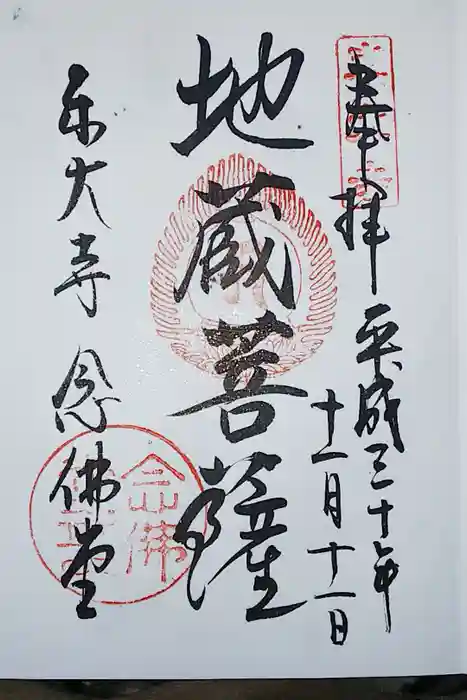 奉拝
平成三十年
十一月十一日
地蔵菩薩
東大寺 念佛堂
念佛